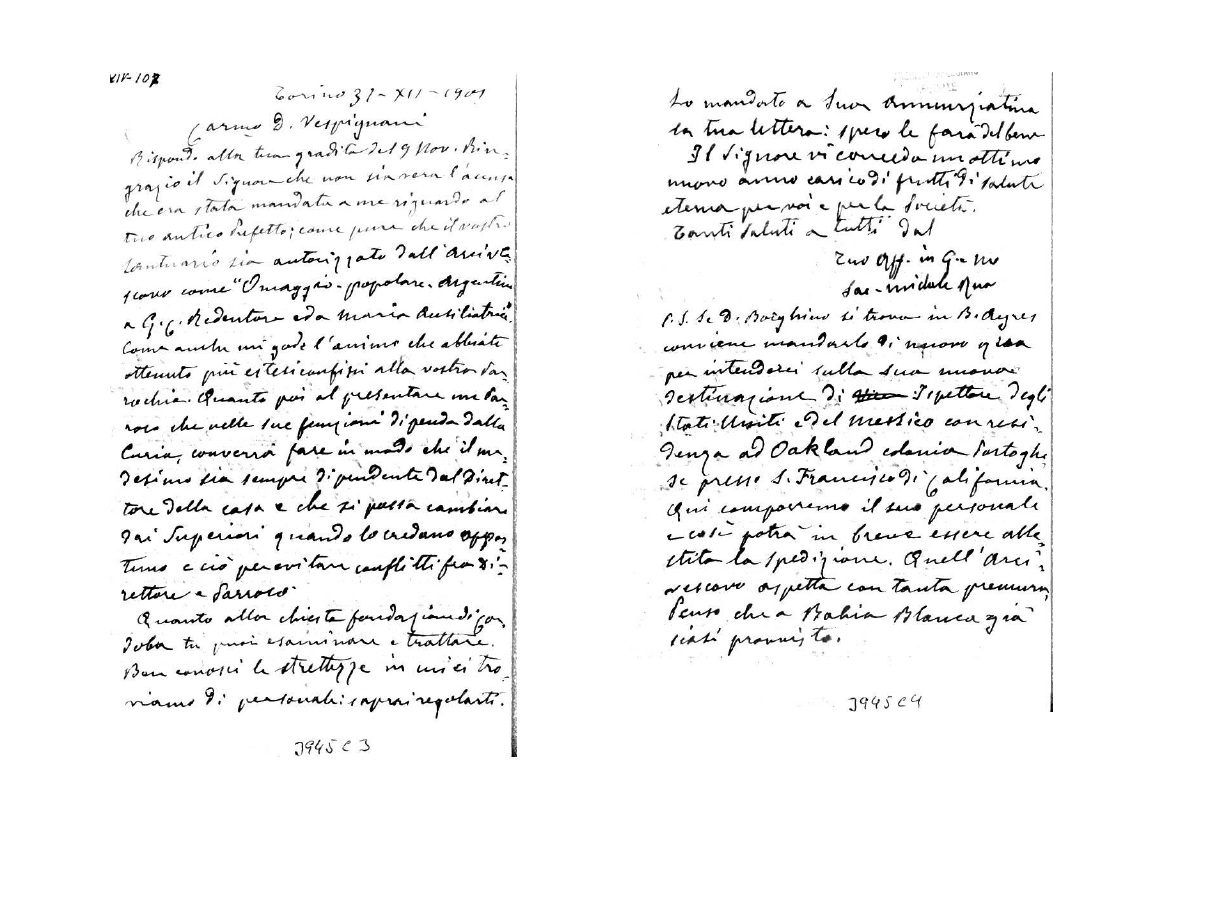 XIV-107
Torino 31-XII-1901
Carmo D. Vespignani
Rispondo alla tua gradita del 9 Nov. Rin-
grazio il Signore che non sia vera l'accusa
che era stata mandata a me riguardo al
tuo antico Prefetto; come pure che il vostro
Santuario sia autorizzato dall'Arcive-
scovo come "Omaggio-popolare-Argentino
a G. C. Redentore e da Maria Ausiliatrice.
Come anche mi gode l'animo che abbiate
ottenuto più estesi confissi alla vostra Par-
rochia. Quanto poi al presentare un Par-
roco che nelle sue funzioni dipenda dalla
Curia, converrà fare in modo che il me-
desimo sia sempre dipendente dal Diret-
tore della casa e che si possa cambiare
dai Superiori quando lo credano oppor-
tuno e ciò per evitare conflitti fra Di-
rettore e Parroco.
Quanto alla chiesta fondazione di Cor-
doba tu puoi esaminare e trattare.
Ben conosci le strettezze in cui ci tro-
viamo di personale: saprai regolarti.
J945 C 3
Ho mandato a Suor Annunziatina
la tua lettera: spero le farà del bene
Il Signore vi conceda un ottimo
nuovo anno carico di frutti di salute
eterna per voi e per la Società.
Tanti saluti a tutti dal
Tuo aff. in G. e M
Sac. Michele Rua
P.S. Se D. Borghino si trova in B. Ayres
conviene mandarlo di nuovo qua
per intenderci sulla sua nuova
destinazione di Ispettore degli
Stati Uniti e del Messico con resi-
denza ad Oakland colonia Portoghe-
se presso S. Francisco di California.
Qui comporremo il suo personale
e così potrà in breve essere alle-
stita la spedizione. Quell'Arci-
vescovo aspetta con tanta premura.
Penso che a Bahia Blanca già
siasi provvisto.
J945 C4